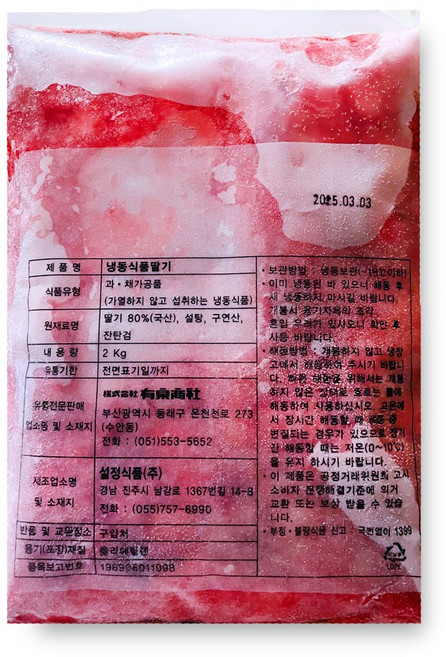 2025.03.03
제 품 명 냉동식품딸기
식품유형 과·채가공품
(가열하지 않고 섭취하는 냉동식품)
원재료명 딸기 80%(국산), 설탕, 구연산,
잔탄검
내 용 량 2 Kg
유통기한 전면표기일까지
유통전문판매
업소명 및 소재지
株式会社 有東商社
부산광역시 동래구 온천천로 273
(수안동)
전화 : (051)553-5652
제조업소명
및 소재지
설정식품(주)
경남 진주시 남강로 1367번길 14-8
전화 : (055)757-6990
반품 및 교환장소 구입처
용기(포장)재질 폴리에틸렌
품목보고번호
·보관방법 : 냉동보관(-18℃이하)
·이미 냉동된 바 있으니 해동 후
재 냉동하지 마시길 바랍니다.
개봉시 용기자체의 조각
혼입 우려가 있사오니 확인 후
사용 바랍니다.
·해동방법 : 개봉하지 않고 냉장
고에서 해동하여 주시기 바랍니
다. 하지만 해동을 위해서는 개봉
하지 않은 상태로 흐르는 물에
해동하여 사용하십시오. 고온에
서 장시간 해동할 때 제품 중
변질되는 경우가 있으므로 장시
간 해동할 때는 저온(0~10℃)
을 유지 하시기 바랍니다.
·이 제품은 공정거래위원회 고시
소비자 분쟁해결기준에 의거
교환 또는 보상 받을 수 있습
니다.
·부정·불량식품 신고 : 국번없이 1399